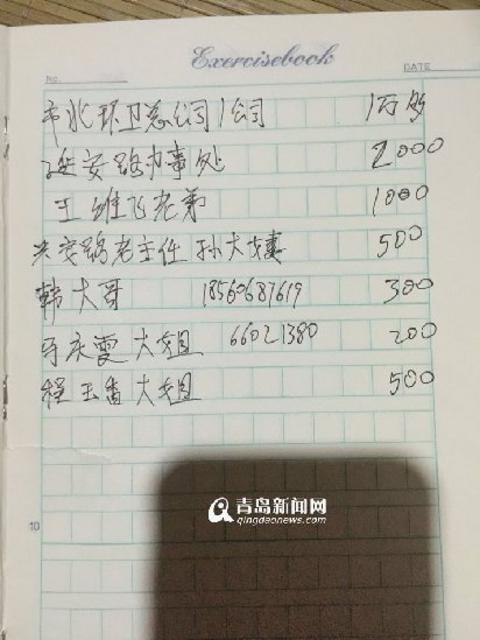 Exercisebook
No. DATE
市北环卫总公司1公司 1万多
延安路办事处 2000
王维飞老弟 1000
兴安路老主任 孙大 500
韩大哥 18560687619 300
大姐 66021380 200
程玉香大姐 500
10
青岛新闻网
qingdaonews.com